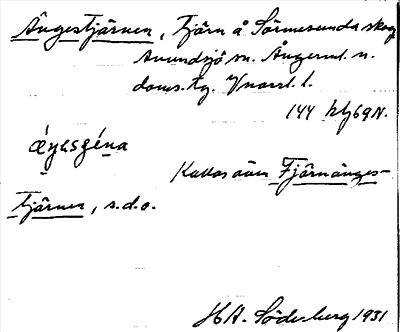 Ängestjärnen, Tjärn å Sörmesunda skog
Anundsjö sn. Ångerml. n.
doms. tg. Vnorrl. l.
144
ǽŋesɕéna
Kallas även Fjärnänges-
tjärnen, s.d.o.
H A. Söderberg 1931